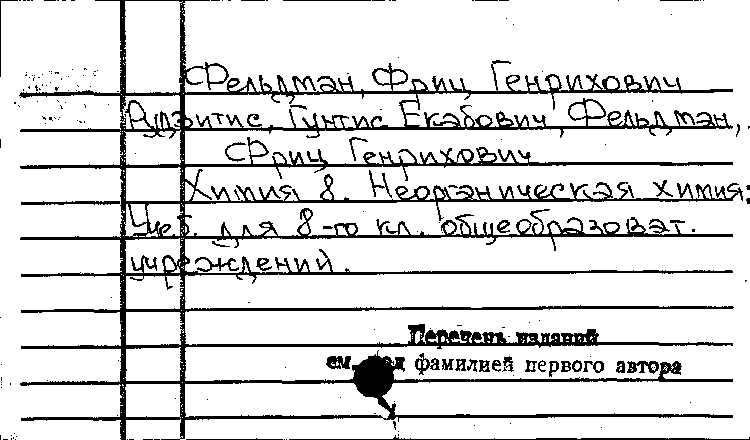 Фельдман, Фриц Генрихович
Рудзитис, Гунтис Екабович, Фельдман,
Фриц Генрихович
Химия 8. Неорганическая химия:
Учеб. для 8-го кл. общеобразоват.
учреждений.
Перечень изданий
см. под фамилией первого автора